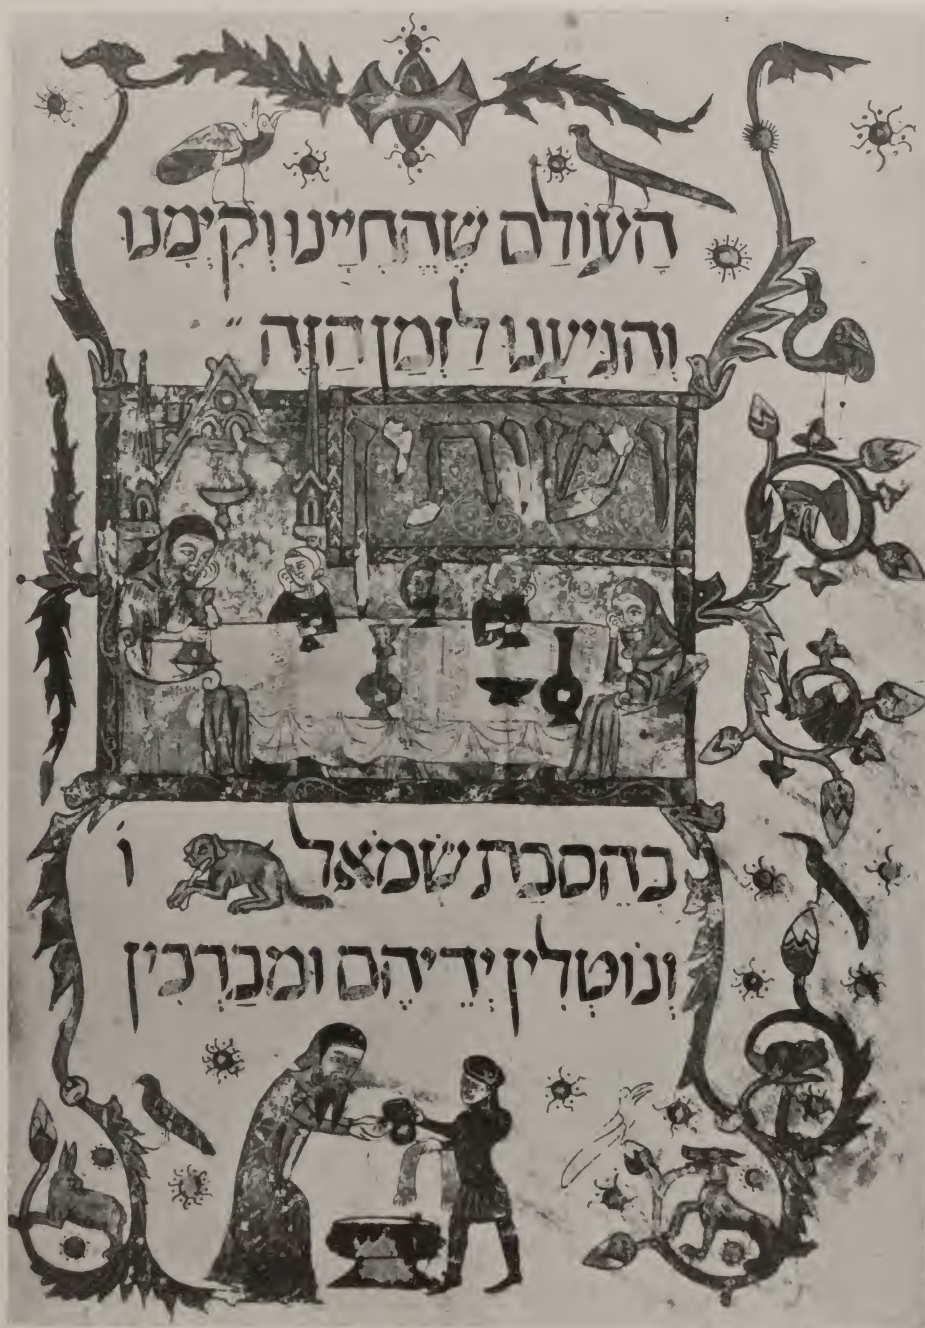 הַעוֹלַם שֶׁהֶחִיַינוּ וְקִיְמַנוּ
וְהִגִיעַנוּ לַזְמַן הַזֶה
ושותין
בְהַסִבַת שְׂמֹאל ו
וְנוֹטְלִין יְדֵיהֶם וּמְבַרְכִין